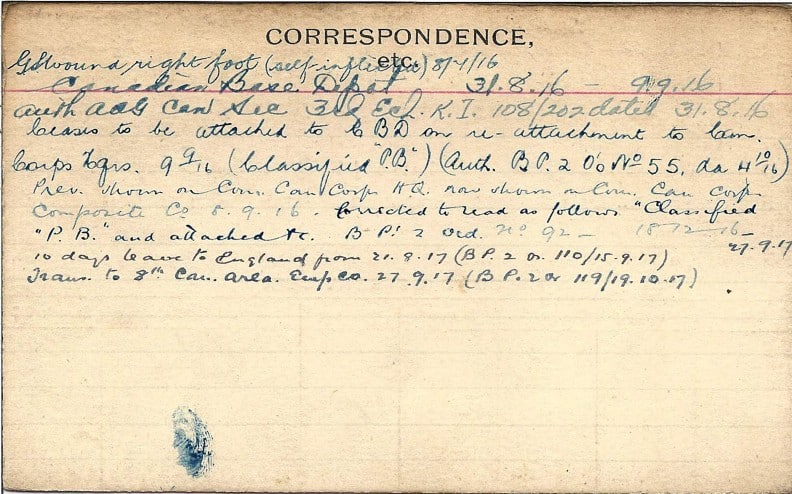 CORRESPONDENCE,
etc.
GSWound right foot (self-inflicted) 8/7/16
Canadian Base Depot 31.8.16 - 9.9.16
auth AAG Can Sec 3rd Ech. K.I. 108/202 dated 31.8.16
Ceases to be attached to CBD on re-attachment to Can.
Corps Hqrs. 9 9/16 (Classified "P.B.") (Auth. BP. 2 O's No 55, da 4/10/16)
Prev. shown on Com. Can Corp HQ. now shown on Com. Can Corp
Composite Co 8.9.16. Corrected to read as follows "Classified
"P.B." and attached &c. BP. 2 Ord. No 92 - 18-12-16 -
27.9.17
10 days leave to England from 21.8.17 (BP. 2 Or. 110/15.9.17)
Trans. to 8th Can. Area. Emp co. 27.9.17 (BP. 2 Or 119/19.10.17)